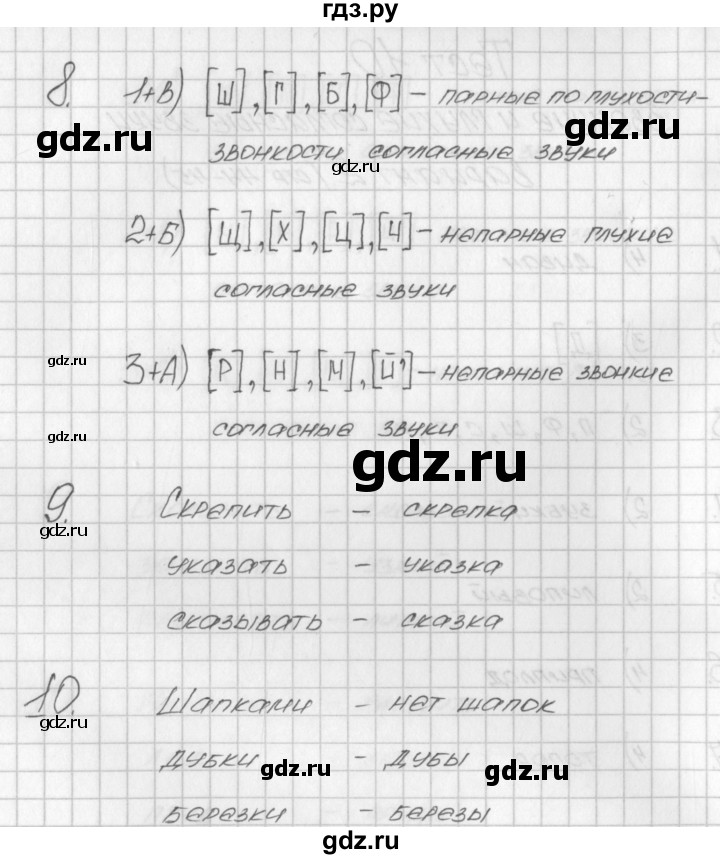 гдз.ру
8. 1+В) [Ш], [Г], [Б], [Ф] – парные по глухости-
gdz.ru
gdz.ru
звонкости согласные звуки
gdz.ru
2+Б) [Щ], [Х], [Ц], [Ч] – непарные глухие
gdz.ru
согласные звуки
gdz.ru
3+А) [Р], [Н], [М], [Й'] – непарные звонкие
gdz.ru
согласные звуки
gdz.ru
9. Скрепить – скрепка
gdz.ru
указать – указка
сказывать – сказка
10. Шапками – нет шапок
gdz.ru
дубки – дубы
gdz.ru
gdz.ru
березки – березы
gdz.ru